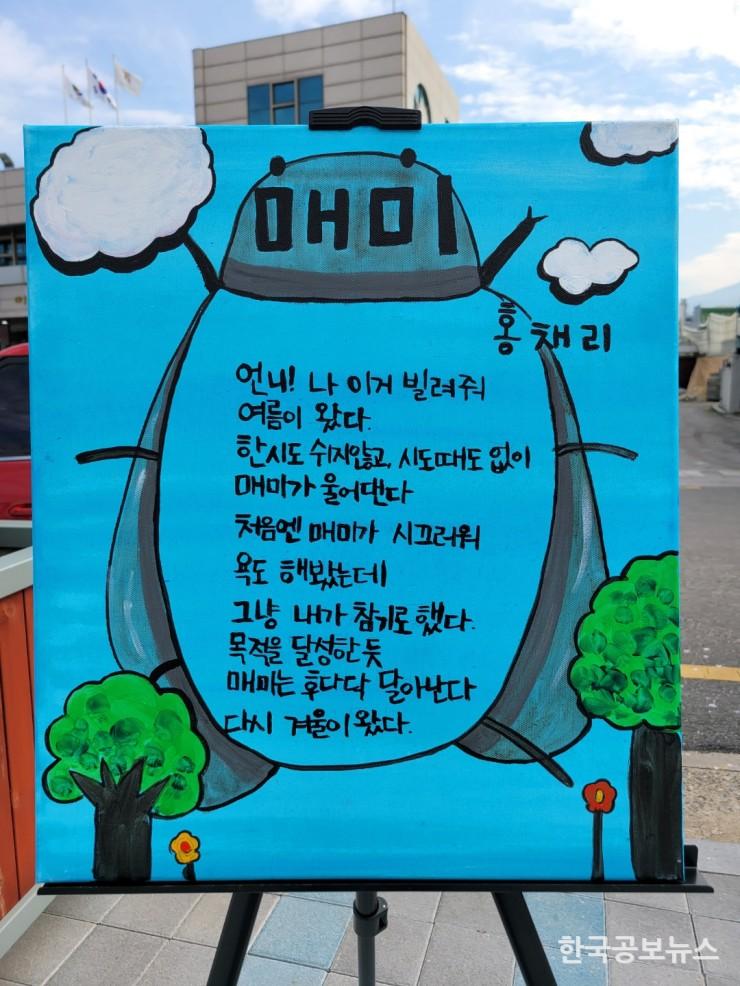 매미
홍채리
언니! 나 이거 빌려줘
여름이 왔다.
한시도 쉬지않고, 시도때도 없이
매미가 울어댄다
처음엔 매미가 시끄러워
욕도 해봤는데
그냥 내가 참기로 했다.
목적을 달성한 듯
매미는 후다닥 달아난다
다시 겨울이 왔다.
한국공보뉴스